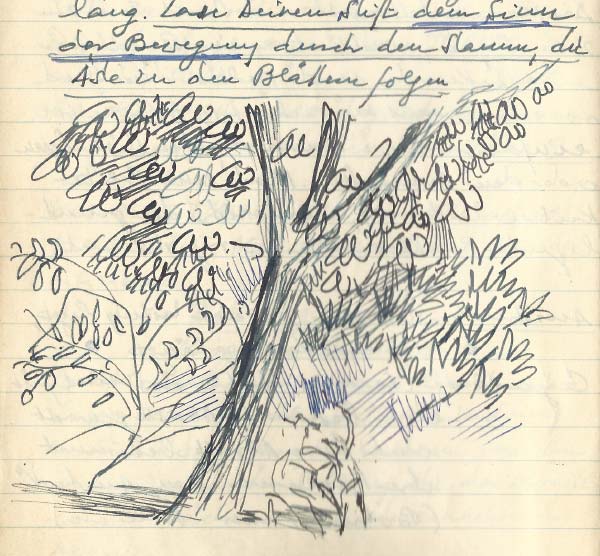 lang. Lass Deinen Stift dem Sinn
der Bewegung durch den Stamm, die
Äste zu den Blättern folgen